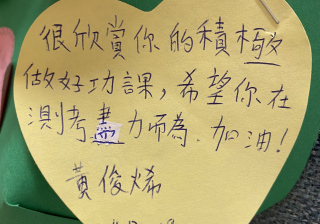 很欣賞你的積極
做好功課，希望你在
測考盡力而為．加油！
黃俊烯